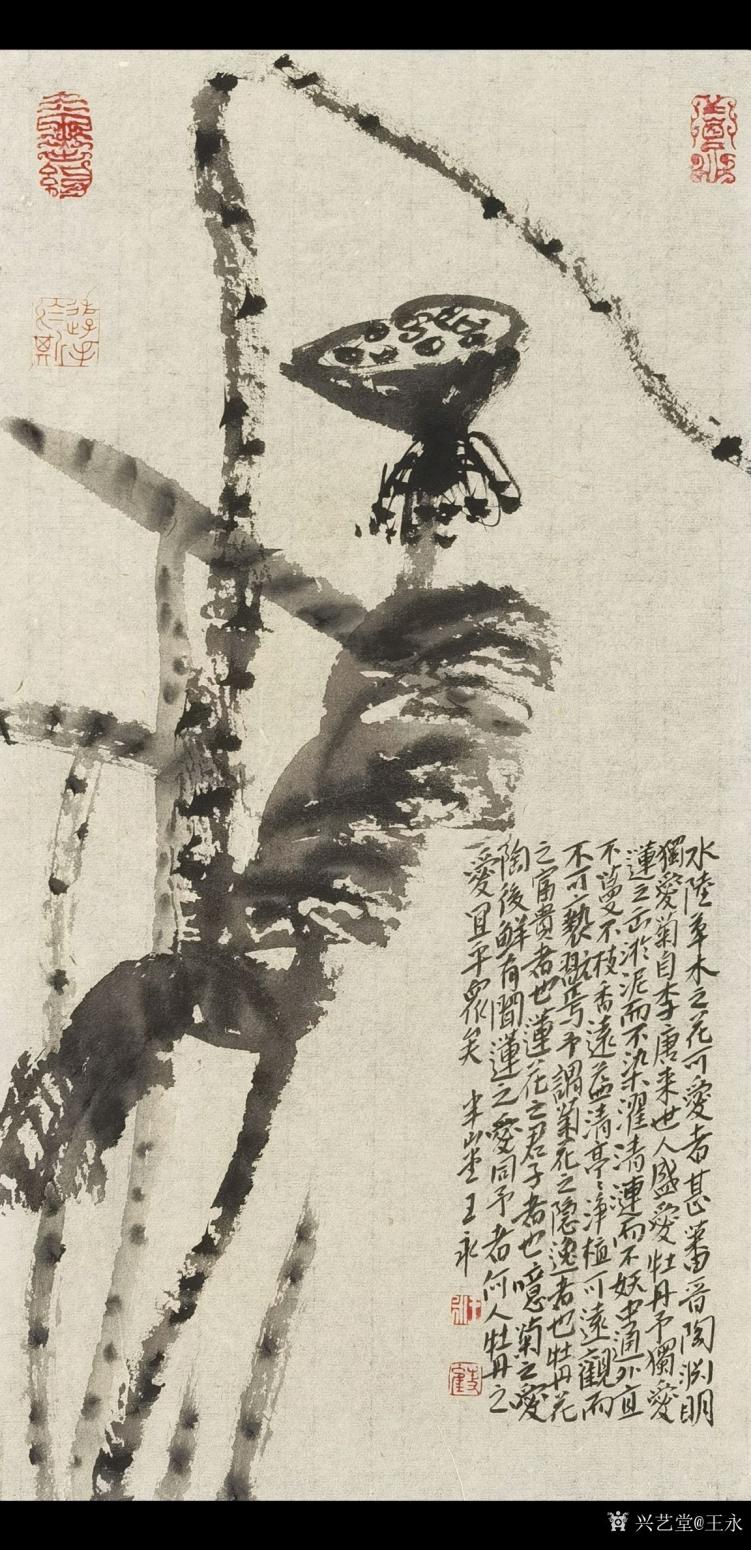 水陸草木之花可愛者甚蕃晋陶渊明
獨愛菊自李唐来世人盛愛牡丹予獨愛
蓮之出淤泥而不染濯清漣而不妖中通外直
不蔓不枝香遠益清亭〻淨植可遠觀而
不可褻翫焉予謂菊花之隐逸者也牡丹花
之富貴者也蓮花之君子者也噫菊之愛
陶後鮮有聞蓮之愛同予者何人牡丹之
愛宜乎衆矣 半山堂王永
兴艺堂@王永